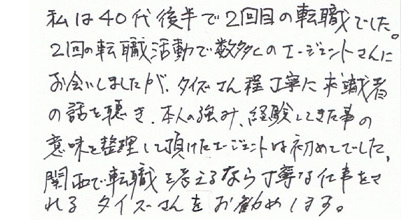 私は40代後半で2回目の転職でした。
2回の転職活動で数多くのエージェントさんに
お会いしましたが、タイズさん程丁寧に求職者
の話を聴き、本人の強み、経験してきた事の
意味を整理して頂けたエージェントは初めてでした。
関西で転職を考えるなら丁寧な仕事をさ
れるタイズさんをお勧めします。